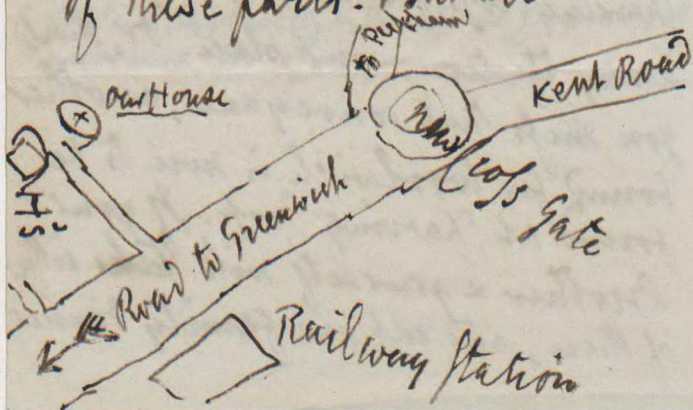 of these parts.
to Peckham
Kent Road
Our House
New
Cross Gate
Road to Greenwich
Railway Station